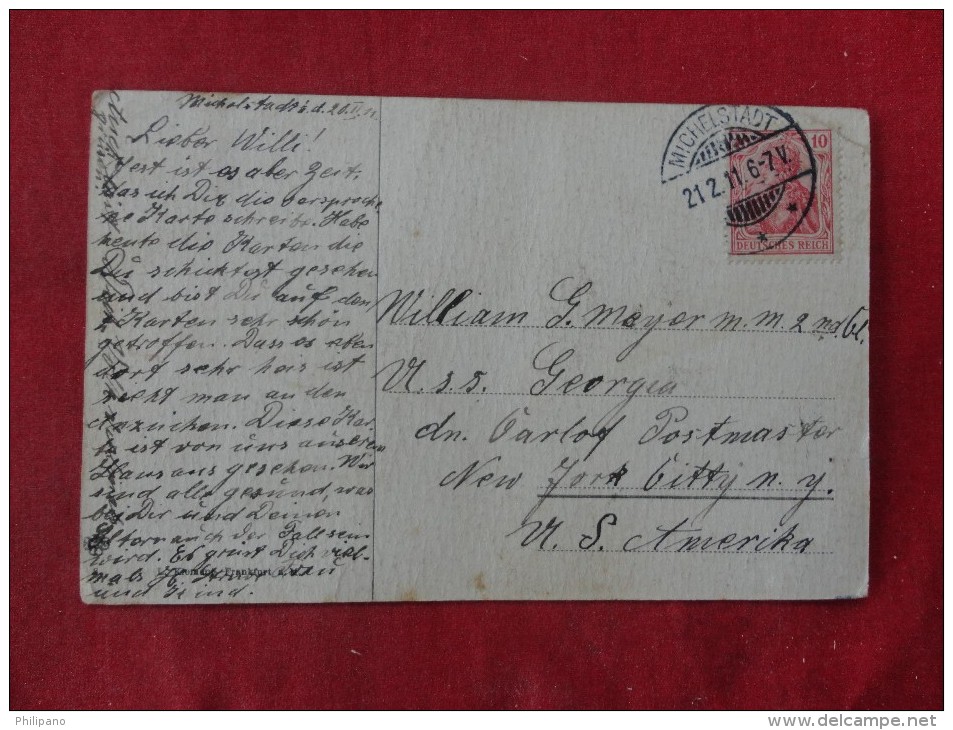 Michelstadt i. d. 20. II. 11.
Lieber Willi!
Jest ist es aber Zeit,
das ich Dir die versproche
ne Karte schreibe. Habe
heute die Karten die
Du schicktest gesehen
und bist Du auf den
Karten sehr schön
getroffen. Dass es eben
dort sehr heis ist
sieht man an den
Anzüchen. Diese Kar-
te ist von uns auserem
Haus aus gesehen. Wir
sind alle gesund, was
bei Dir und Deinen
Eltern auch der Fall sein
wird. Es grüst Dich viel-
mals
und Kind.
Frankfurt a. M.
MICHELSTADT
21.2.11. 6-7 V.
10
DEUTSCHES REICH
William G. Meyer m. m. 2 nd. Cl.
U. S. S. Georgia
Carlof Postmaster
New York Citty n. y.
U. S. Amerika
Philipano
www.delcampe.net